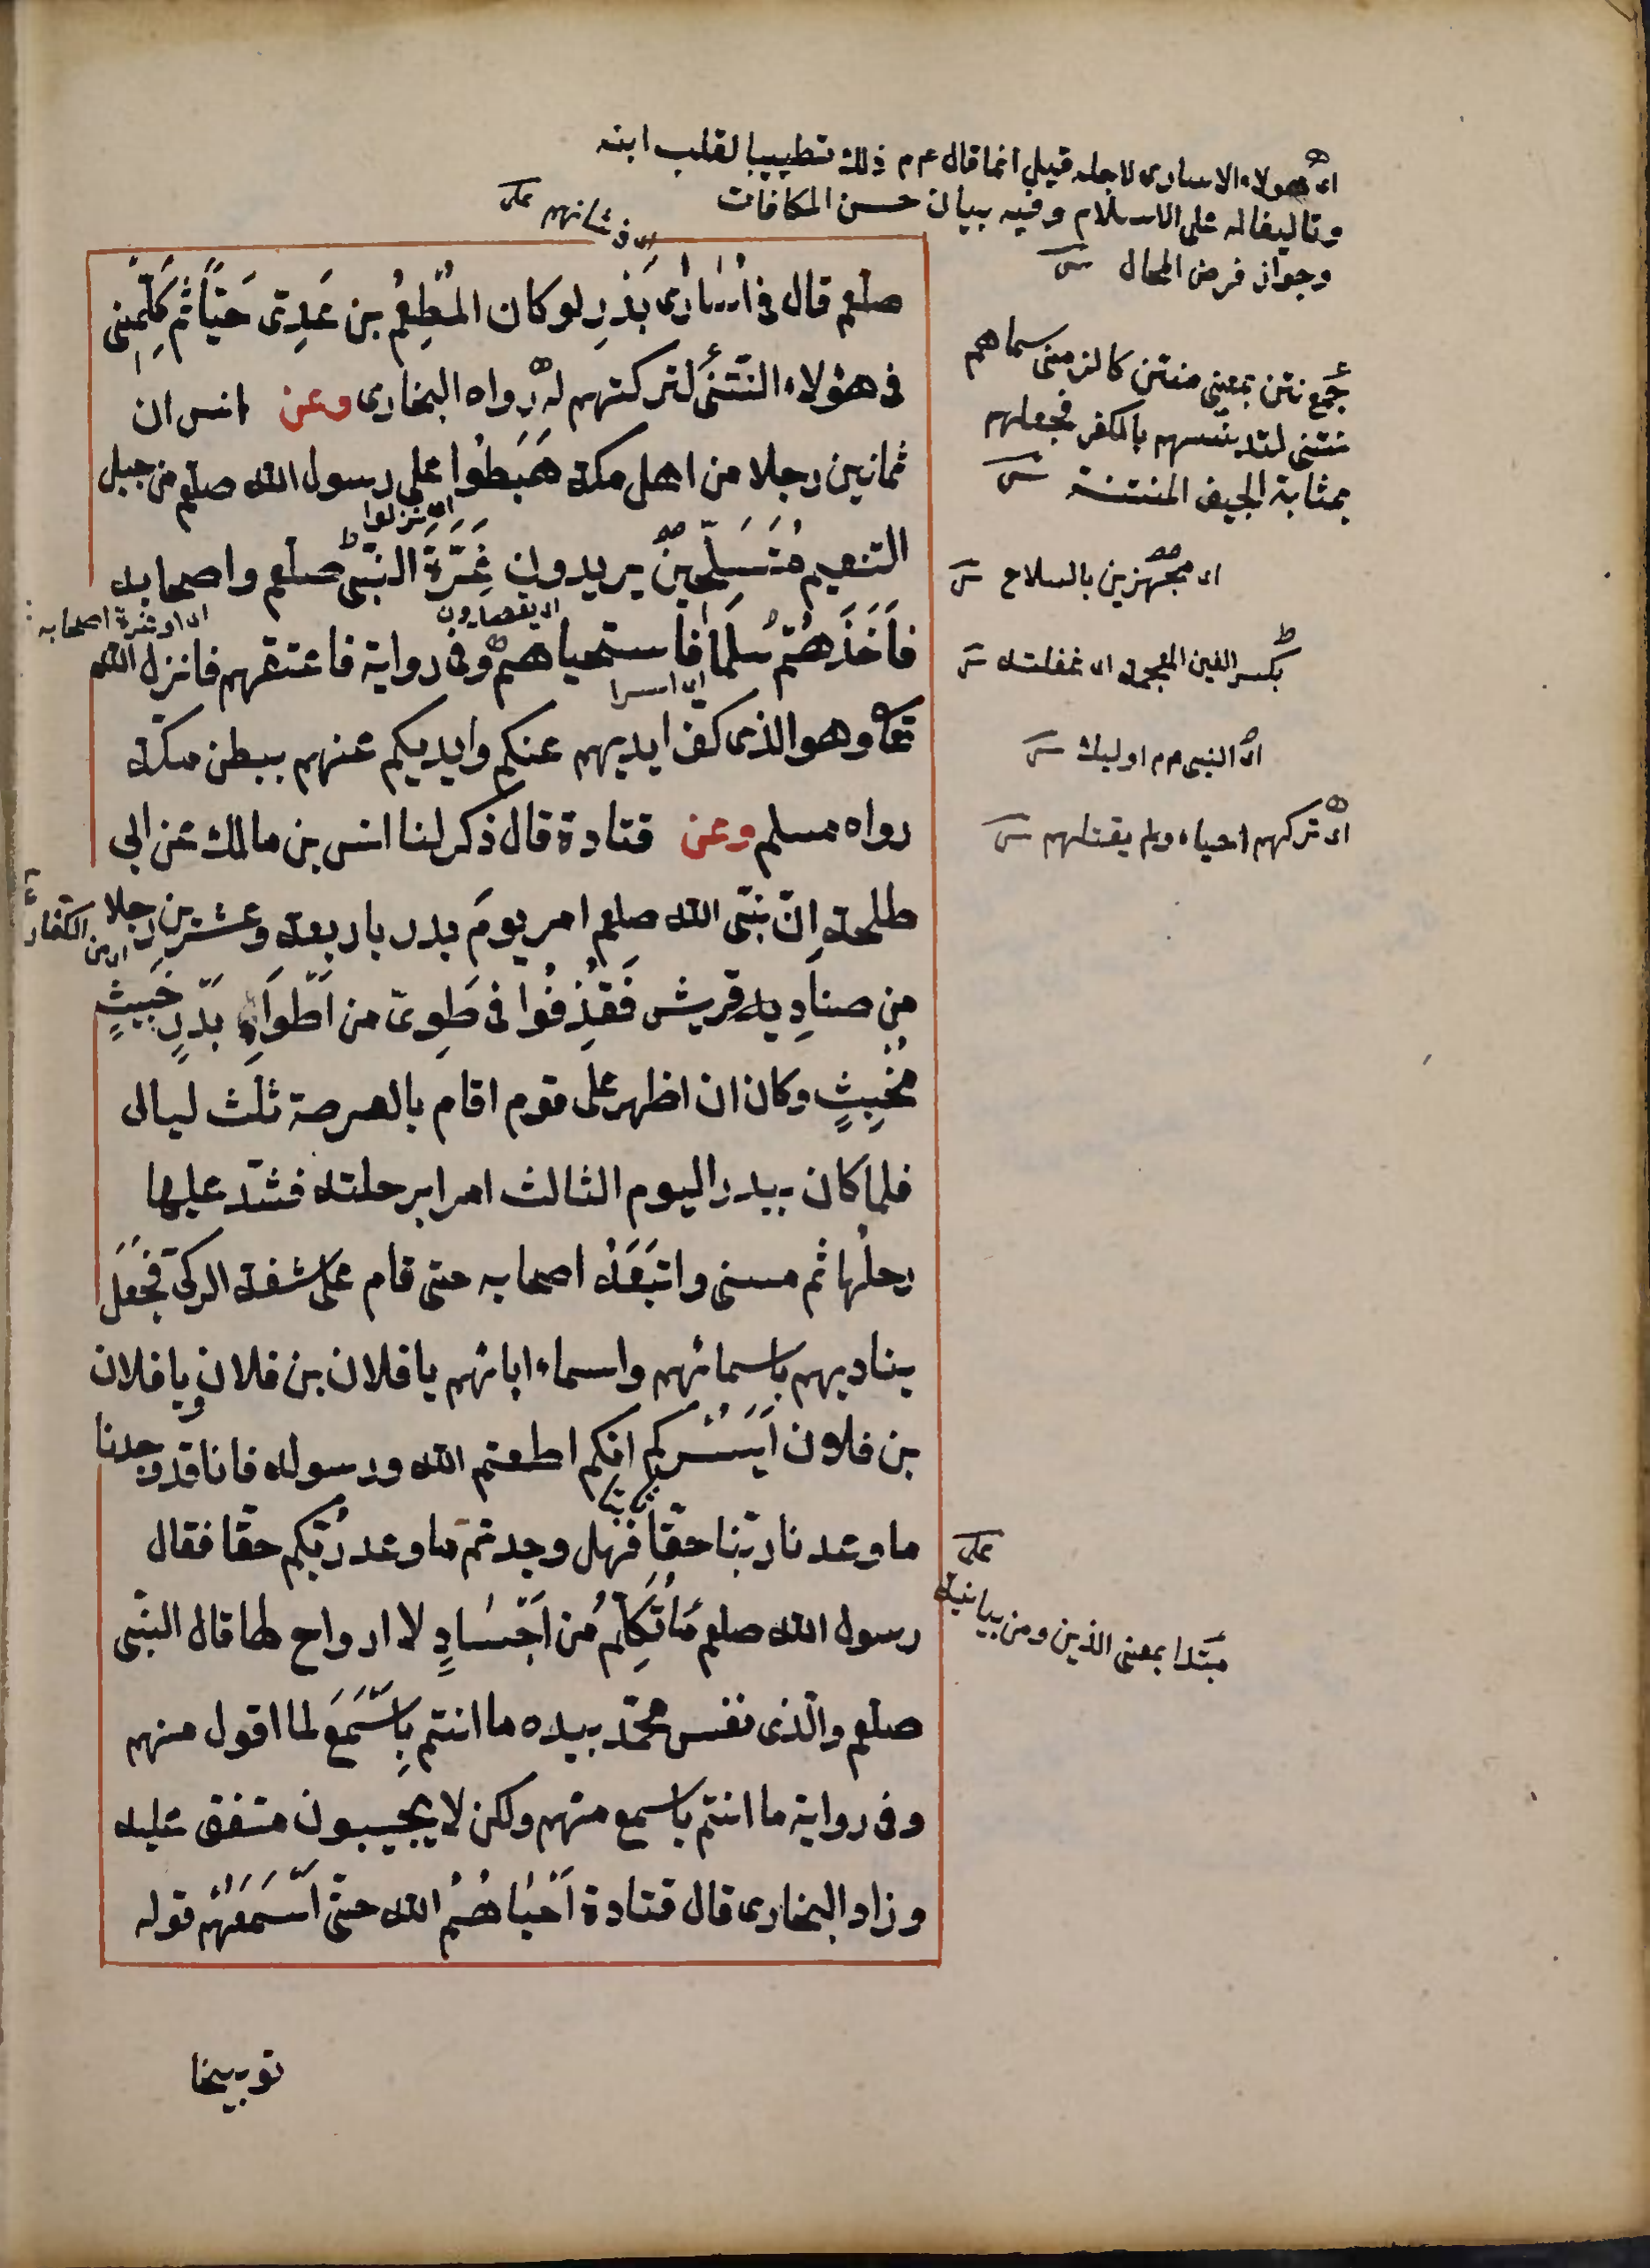 اى هولاء الاسارى لاجله قيل انما قال عم م ذلك تطييبا لقلب ابنه
وتاليفا له على الاسلام وفيه بيان حسن المكافات
وجواز فرض المحال
اى فى شانهم
صلعم قال فى اُسَارٰى بَدْرٍ لو كان المُطْعِمُ بن عَدِىّ حَيًّا ثُمَّ كَلَّمَنِى
فى هؤلاء النَّتْنٰى لتركتهم له رواه البخارى وعن انس ان
ثمانين رجلا من اهل مكة هَبَطُوا على رسول الله صلعم من جبل
اى نزلوا
التنعيم مُتَسَلِّحِينَ يريدون غِرَّةَ النّبىّ صلعم واصحابه
اى يقصدون
اى او غرة اصحابه
فَاَخَذَهُمْ سِلْمًا فاستحياهم وفى رواية فاعتقهم فانزل الله
اى اسرا
تعا وهو الذى كف ايديهم عنكم وايديكم عنهم ببطن مكة
رواه مسلم وعن قتادة قال ذكر لنا انس بن مالك عن ابى
طلحة اِنّ نبىّ الله صلعم امر يومَ بدر باربعة وعشرين رجلا
اى من الكفار
مِن صناديد قريش فَقُذِفُوا فى طَوِىّ من اَطْوَاءِ بَدْرٍ خَبِيثٍ
مُخْبِثٍ وكان ان اظهر على قوم اقام بالعرصة ثلث ليالى
فلما كان ببدر اليوم الثالث امر ابرحلته فشدّ عليها
رحلُها ثم مسنى واتبَعَهُ اصحابه حتى قام على شفة الركىّ فجَعَلَ
يناديهم باسمائهم واسماء ابائهم يا فلان بن فلان ويا فلان
بن فلان اَيَسُرُّكم انكم اطعتم الله ورسوله فانا قد وجدنا
ما وعدنا ربّنا حقّاً فهل وجدتم ما وعد رَبّكم حقّا فقال
رسول الله صلعم مَا تُكَلِّمُ مِن اَجْسَادٍ لا ارواح لها قال النّبى
صلعم والّذى نفس محمّد بيده ما انتم بِاَسْمَعَ لما اقول منهم
وفى رواية ما انتم باسمع منهم ولكن لا يجيبون متفق عليه
وزاد البخارى قال قتادة اَحْيَاهُمُ الله حتّى اَسْمَعَهُمْ قوله
جمع نتن بمعنى منتن كالزمنى سماهم
نتنى لتدنسهم بالكفر فجعلهم
بمثابة الجيف المنتنة
اى مجهزين بالسلاح
بكسر الغين المعجمة اى غفلته
اى النبى م م اوليك
اى تركهم احياء ولم يقتلهم
مبتدا بمعنى الذين ومن بيانية
توبيخا